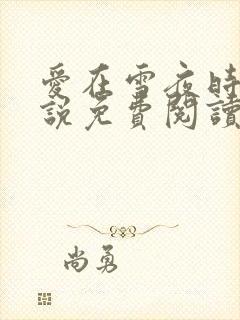 愛在雪夜時
說免費閱讀
尚勇